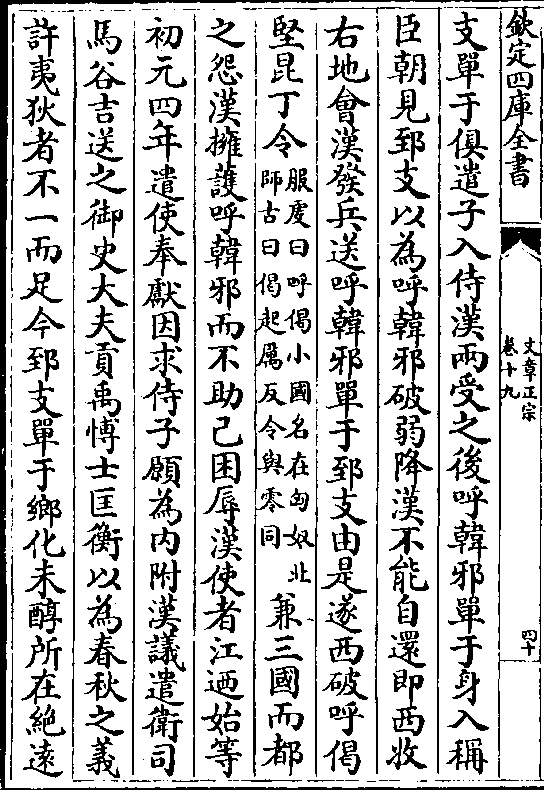 欽定四庫全書
文章正宗
卷十九
四十
支單于俱遣子入侍漢兩受之後呼韓邪單于身入稱
臣朝見郅支以為呼韓邪破弱降漢不能自還即西收
右地會漢發兵送呼韓邪單于郅支由是遂西破呼偈
堅昆丁令
服虔曰呼偈小國名在匈奴北
師古曰偈起厲反令與零同
兼三國而都
之怨漢擁護呼韓邪而不助己困辱漢使者江迺始等
初元四年遣使奉獻因求侍子願為内附漢議遣衛司
馬谷吉送之御史大夫貢禹愽士匡衡以為春秋之義
許夷狄者不一而足今郅支單于鄉化未醇所在絶遠